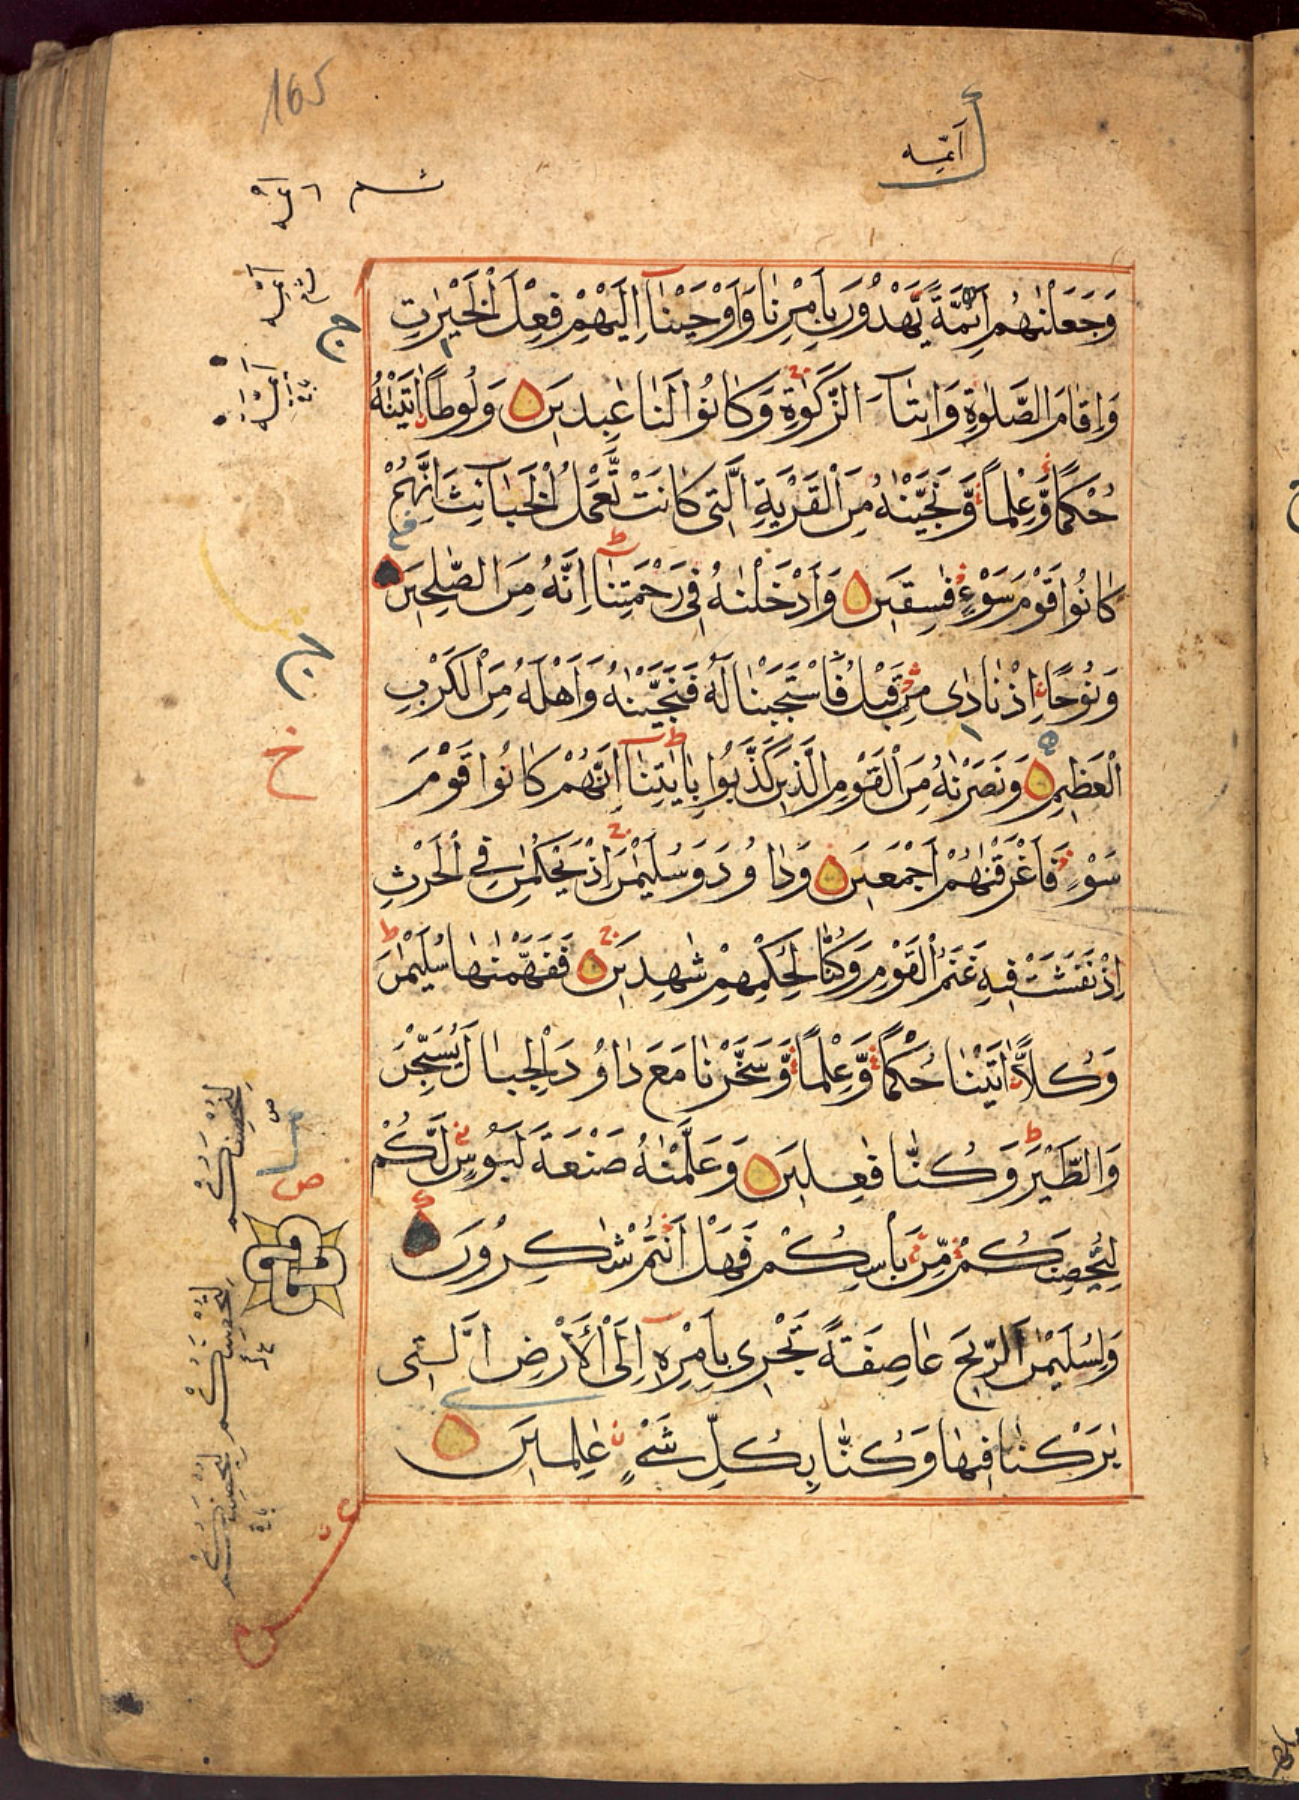 165
أَئمَّه
وَجَعَلْنٰهُمْ اَئِمَّةً يَّهْدُوْنَ بِاَمْرِنَا وَاَوْحَيْنَآ اِلَيْهِمْ فِعْلَ الْخَيْرٰتِ
وَاِقَامَ الصَّلٰوةِ وَاِيْتَآءَ الزَّكٰوةِ وَكَانُوْا لَنَا عٰبِدِيْنَ وَلُوْطًا اٰتَيْنٰهُ
حُكْمًا وَّعِلْمًا وَّنَجَّيْنٰهُ مِنَ الْقَرْيَةِ الَّتِى كَانَتْ تَّعْمَلُ الْخَبَآئِثَ اِنَّهُمْ
كَانُوْا قَوْمَ سَوْءٍ فٰسِقِيْنَ وَاَدْخَلْنٰهُ فِى رَحْمَتِنَآ اِنَّهُ مِنَ الصّٰلِحِيْنَ
وَنُوْحًا اِذْ نَادٰى مِنْ قَبْلُ فَاسْتَجَبْنَا لَهُ فَنَجَّيْنٰهُ وَاَهْلَهُ مِنَ الْكَرْبِ
الْعَظِيْمِ وَنَصَرْنٰهُ مِنَ الْقَوْمِ الَّذِيْنَ كَذَّبُوْا بِاٰيٰتِنَآ اِنَّهُمْ كَانُوْا قَوْمَ
سَوْءٍ فَاَغْرَقْنٰهُمْ اَجْمَعِيْنَ وَدَاوُدَ وَسُلَيْمٰنَ اِذْ يَحْكُمٰنِ فِى الْحَرْثِ
اِذْ نَفَشَتْ فِيْهِ غَنَمُ الْقَوْمِ وَكُنَّا لِحُكْمِهِمْ شٰهِدِيْنَ فَفَهَّمْنٰهَا سُلَيْمٰنَ
وَكُلًّا اٰتَيْنَا حُكْمًا وَّعِلْمًا وَّسَخَّرْنَا مَعَ دَاوُدَ الْجِبَالَ يُسَبِّحْنَ
وَالطَّيْرَ وَكُنَّا فٰعِلِيْنَ وَعَلَّمْنٰهُ صَنْعَةَ لَبُوْسٍ لَّكُمْ
لِتُحْصِنَكُمْ مِّنْ بَأْسِكُمْ فَهَلْ اَنْتُمْ شٰكِرُوْنَ
وَلِسُلَيْمٰنَ الرِّيْحَ عَاصِفَةً تَجْرِى بِاَمْرِهِ اِلَى الْاَرْضِ الَّتِى
بٰرَكْنَا فِيْهَا وَكُنَّا بِكُلِّ شَىْءٍ عٰلِمِيْنَ